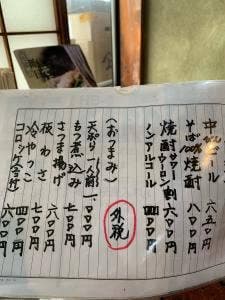 中びんビール 六五〇円
そば100%焼酎 八〇〇円
焼酎サワーウーロン割 六〇〇円
ノンアルコール 四〇〇円
(おつまみ) 外税
一人前 一〇〇〇円
もつ煮込み 七〇〇円
さつま揚げ 六〇〇円
板わさ 七〇〇円
冷やっこ 四〇〇円
コロッケ 六〇〇円